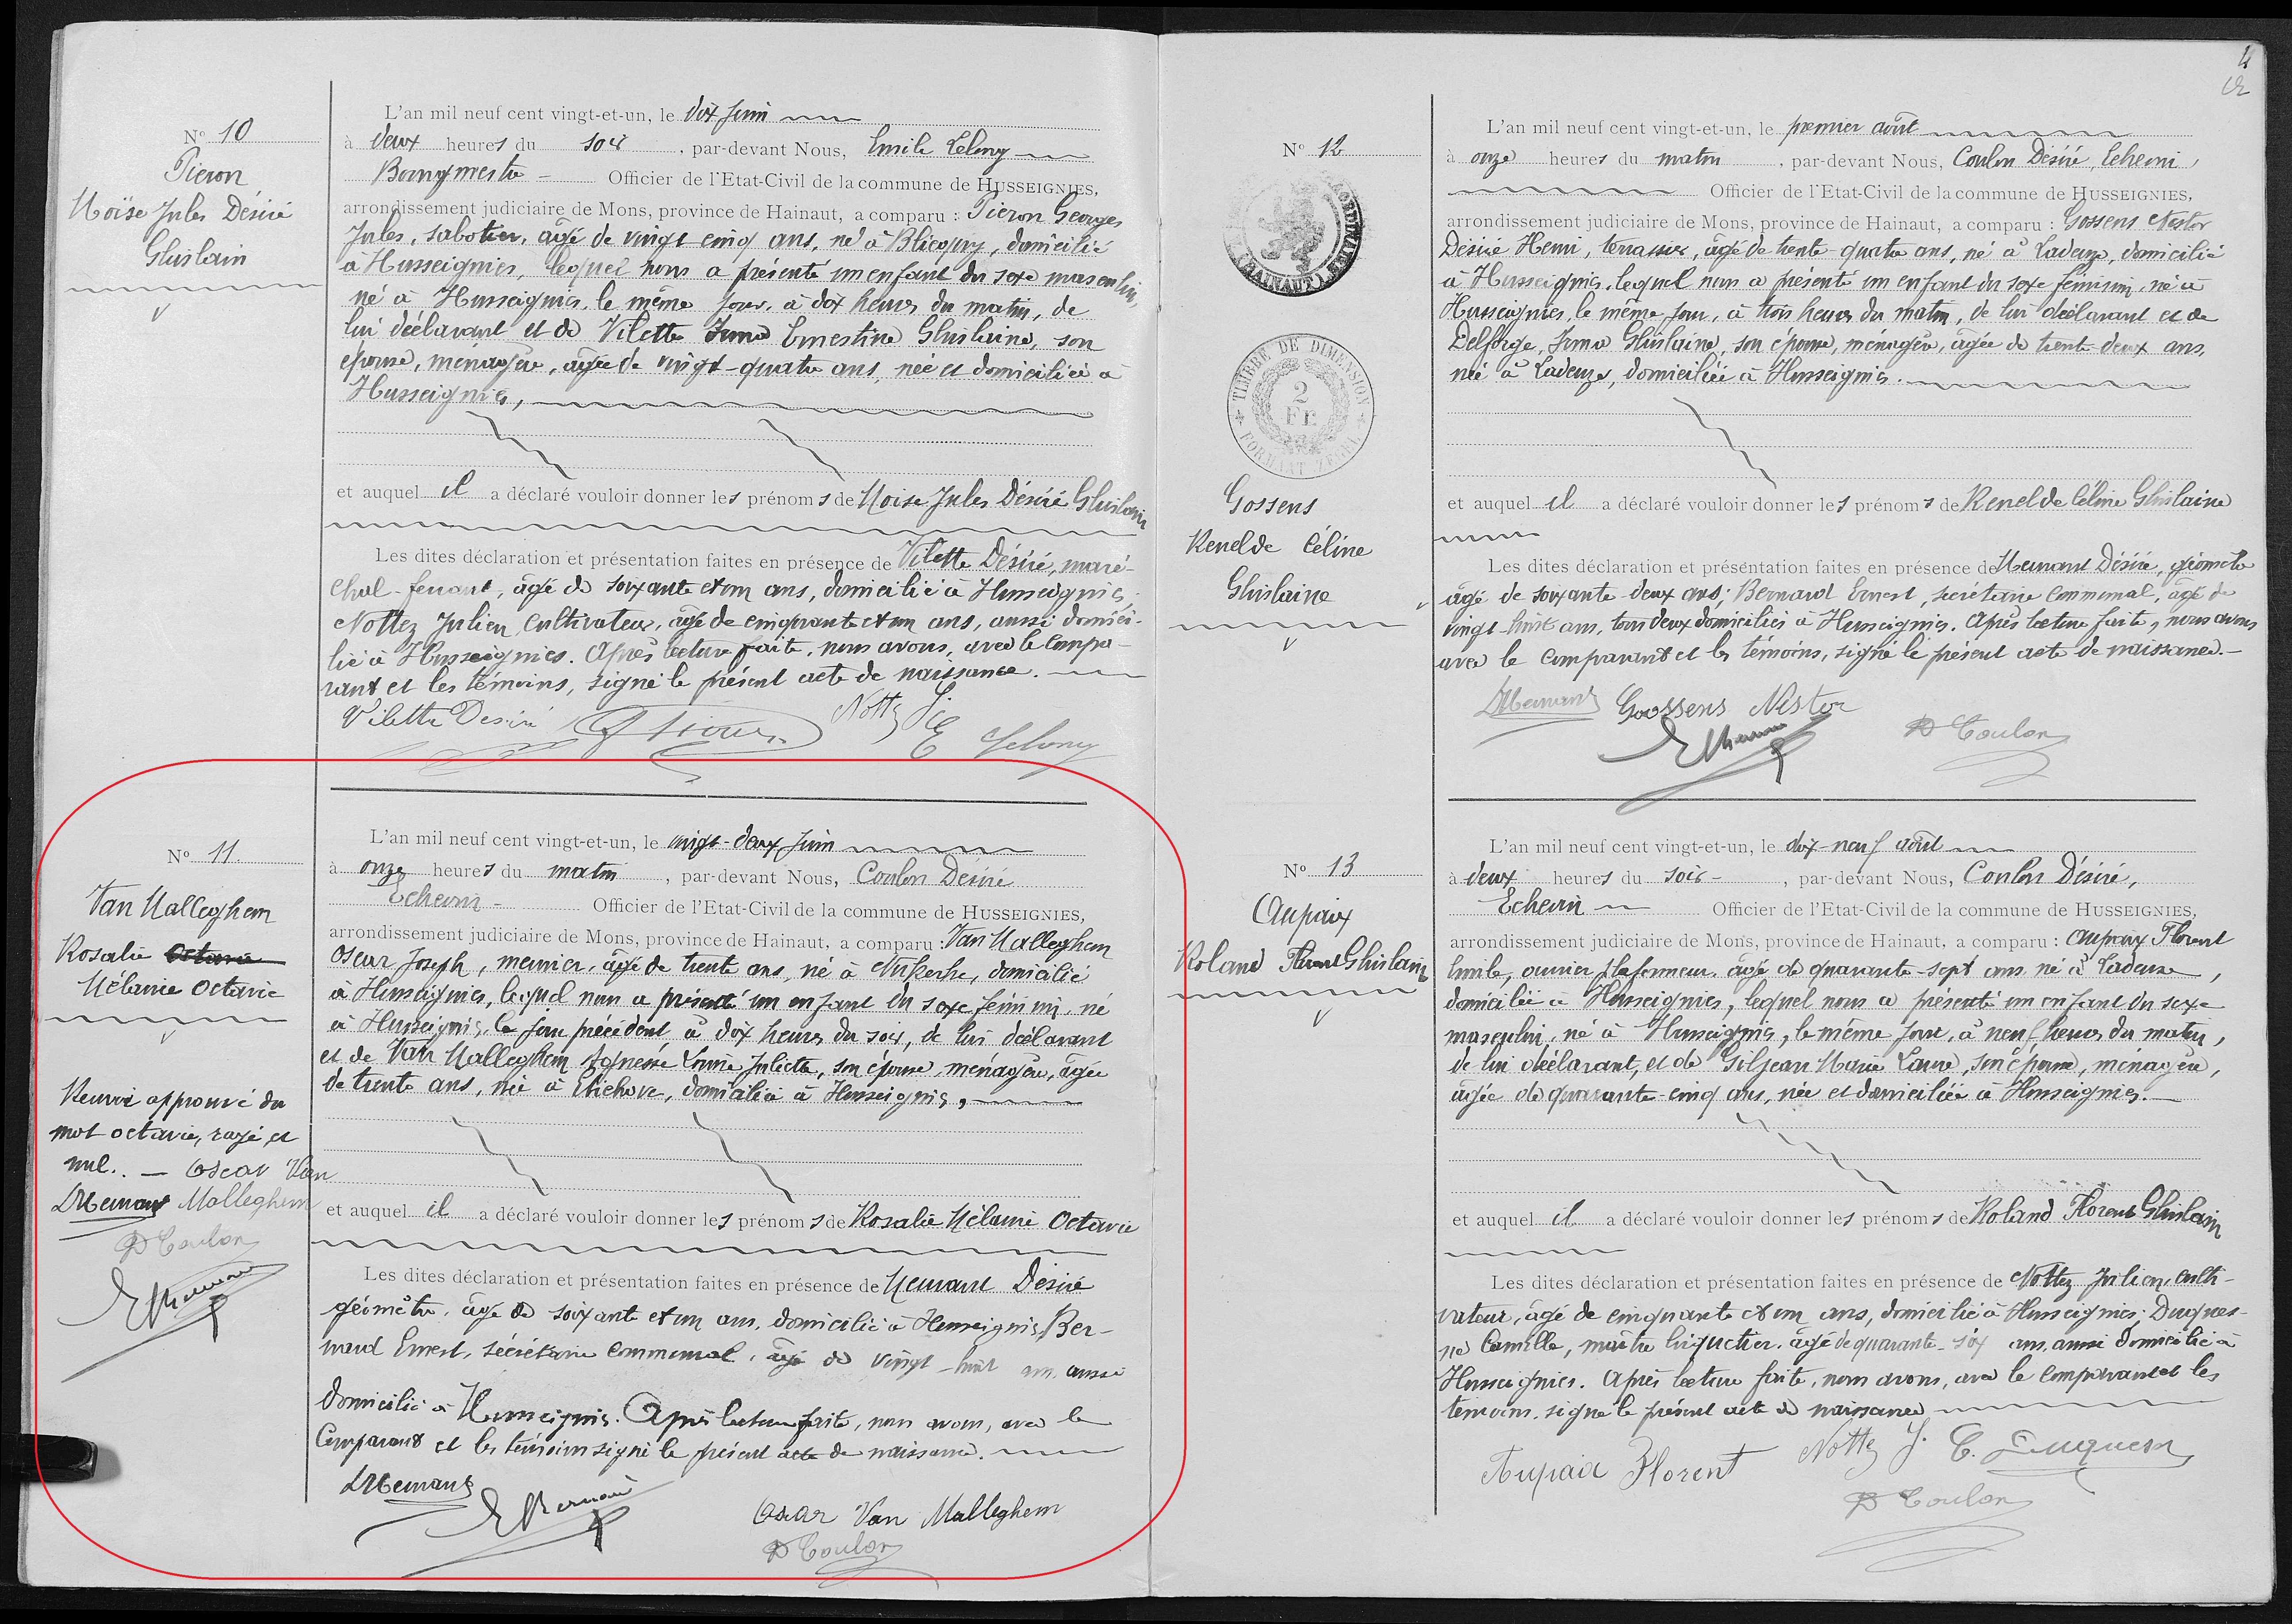 4
N° 10
Pieron
Moïse Jules Désiré
Ghislain
L'an mil neuf cent vingt-et-un, le dix juin
à deux heures du soir, par-devant Nous, Emile Leleng
Bourgmestre - Officier de l'Etat-Civil de la commune de HUSSEIGNIES,
arrondissement judiciaire de Mons, province de Hainaut, a comparu : Pieron Georges
Jules, sabotier, âgé de vingt-cinq ans, né à Blicquy, domicilié
à Husseignies, lequel nous a présenté un enfant du sexe masculin,
né à Husseignies, le même jour, à dix heures du matin, de
lui déclarant et de Vilette Irma Ernestine Ghislaine, son
épouse, ménagère, âgée de vingt-quatre ans, née et domiciliée à
Husseignies,
et auquel il a déclaré vouloir donner les prénoms de Moïse Jules Désiré Ghislain
Les dites déclaration et présentation faites en présence de Vilette Désiré, maré-
chal-ferrant, âgé de soixante et un ans, domicilié à Husseignies,
Nottez Julien, cultivateur, âgé de cinquante et un ans, aussi domici-
lié à Husseignies. Après lecture faite, nous avons, avec le compa-
rant et les témoins, signé le présent acte de naissance.
Vilette Désiré Nottez J
N° 11
Van Malleghem
Rosalie Octavie
Mélanie Octavie
Renvoi approuvé du
mot octavie, rayé et
nul. — Oscar Van
DMernant Malleghem
D Coulon
EBernard
L'an mil neuf cent vingt-et-un, le vingt-deux juin
à onze heures du matin, par-devant Nous, Coulon Désiré
Echevin - Officier de l'Etat-Civil de la commune de HUSSEIGNIES,
arrondissement judiciaire de Mons, province de Hainaut, a comparu : Van Malleghem
Oscar Joseph, meunier, âgé de trente ans, né à Nukerke, domicilié
à Husseignies, lequel nous a présenté un enfant du sexe féminin, né
à Husseignies, le jour précédent à dix heures du soir, de lui déclarant
et de Van Malleghem Agnesie Louise Juliette, son épouse, ménagère, âgée
de trente ans, née à Etichove, domiciliée à Husseignies,
et auquel il a déclaré vouloir donner les prénoms de Rosalie Mélanie Octavie
Les dites déclaration et présentation faites en présence de Mernant Désiré
géomètre, âgé de soixante et un ans, domicilié à Husseignies, Ber-
nard Ernest, sécrétaire communal, âgé de vingt-huit ans, aussi
domicilié à Husseignies. Après lecture faite, nous avons, avec le
comparant et les témoins signé le présent acte de naissance.
DMernant
EBernard Oscar Van Malleghem
D Coulon
N° 12
(HAINAUT)
TIMBRE DE DIMENSION
2
FR
FORMAAT ZEGEL
Gossens
Renelde Céline
Ghislaine
L'an mil neuf cent vingt-et-un, le premier août
à onze heures du matin, par-devant Nous, Coulon Désiré, Echevin,
Officier de l'Etat-Civil de la commune de HUSSEIGNIES,
arrondissement judiciaire de Mons, province de Hainaut, a comparu : Gossens Nestor
Désiré Henri, terrassier, âgé de trente-quatre ans, né à Ladeuze, domicilié
à Husseignies, lequel nous a présenté un enfant du sexe féminin, né à
Husseignies, le même jour, à trois heures du matin, de lui déclarant et de
Delforge, Irma Ghislaine, son épouse, ménagère, âgée de trente-deux ans,
née à Ladeuze, domiciliée à Husseignies.
et auquel il a déclaré vouloir donner les prénoms de Renelde Céline Ghislaine
Les dites déclaration et présentation faites en présence de Mernant Désiré, géomètre
âgé de soixante-deux ans; Bernard Ernest, secrétaire communal, âgé de
vingt-huit ans, tous deux domiciliés à Husseignies. Après lecture faite, nous avons
avec le comparant et les témoins, signé le présent acte de naissance.—
DMernant Goossens Nestor
EBernard D Coulon
N° 13
Aupaix
Roland Florent Ghislain
L'an mil neuf cent vingt-et-un, le dix-neuf août
à deux heures du soir -, par-devant Nous, Coulon Désiré,
Echevin Officier de l'Etat-Civil de la commune de HUSSEIGNIES,
arrondissement judiciaire de Mons, province de Hainaut, a comparu : Aupaix Florent
Emile, ouvrier plafonneur, âgé de quarante-sept ans, né à Ladeuze,
domicilié à Husseignies, lequel nous a présenté un enfant du sexe
masculin, né à Husseignies, le même jour, à neuf heures du matin,
de lui déclarant, et de Giljean Marie Laure, son épouse, ménagère,
âgée de quarante-cinq ans, née et domiciliée à Husseignies.
et auquel il a déclaré vouloir donner les prénoms de Roland Florent Ghislain
Les dites déclaration et présentation faites en présence de Nottez Julien, culti-
vateur, âgé de cinquante et un ans, domicilié à Husseignies; Duques-
ne Camille, maître briquetier, âgé de quarante-six ans, aussi domicilié à
Husseignies. Après lecture faite, nous avons, avec le comparant et les
témoins, signé le présent acte de naissance
Aupaix Florent Nottez J. C. Duquesn
D Coulon